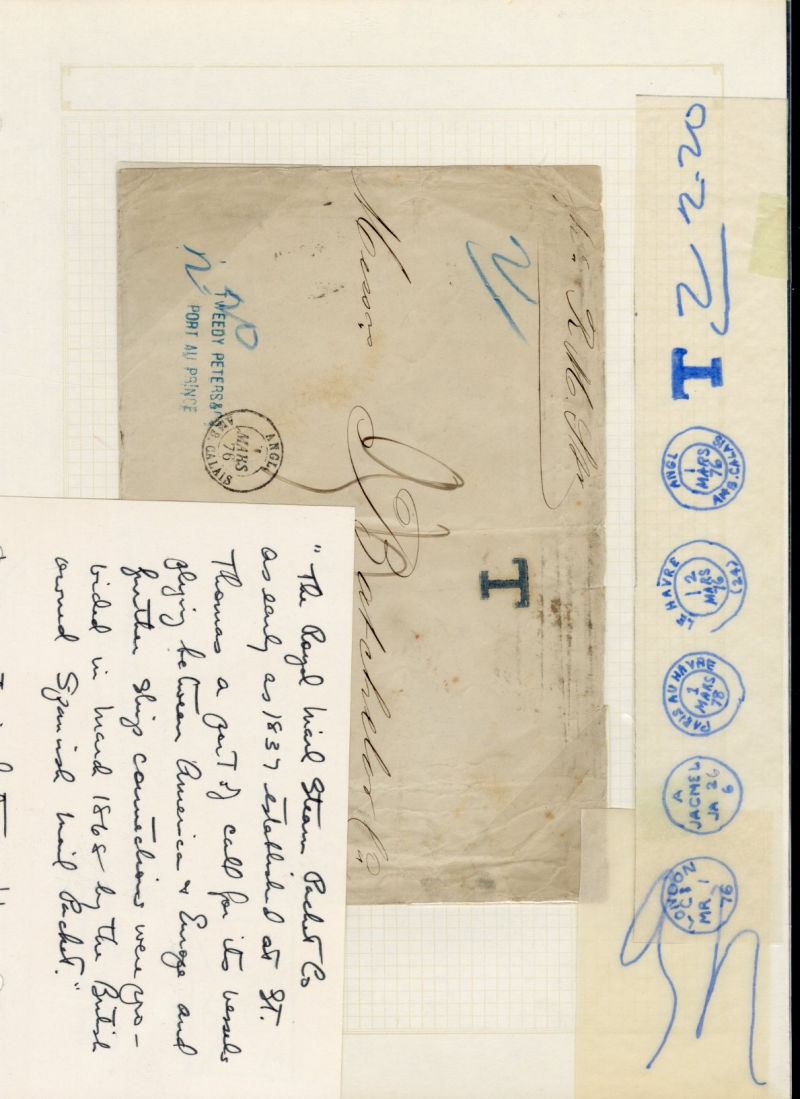 Per R. M. Str
2
Messrs
J. Batchelor Co
T
TWEEDY PETERS &
PORT AU PRINCE
2-20
ANGL.
1
MARS
76
AMB. CALAIS
T 2 2-20
ANGL
1
MARS
76
AMB. CALAIS
LE HAVRE
1 2
MARS
76
(24)
PARIS AU HAVRE
1
MARS
78
A
JACMEL
JA 26
6
LONDON
MR 1
76
" The Royal Mail Steam Packet Co
as early as 1837 established at St.
Thomas a port of call for its vessels
plying between America & Europe and
further ship connections were pro-
vided in March 1868 by the British
owned Spanish Mail Packet."